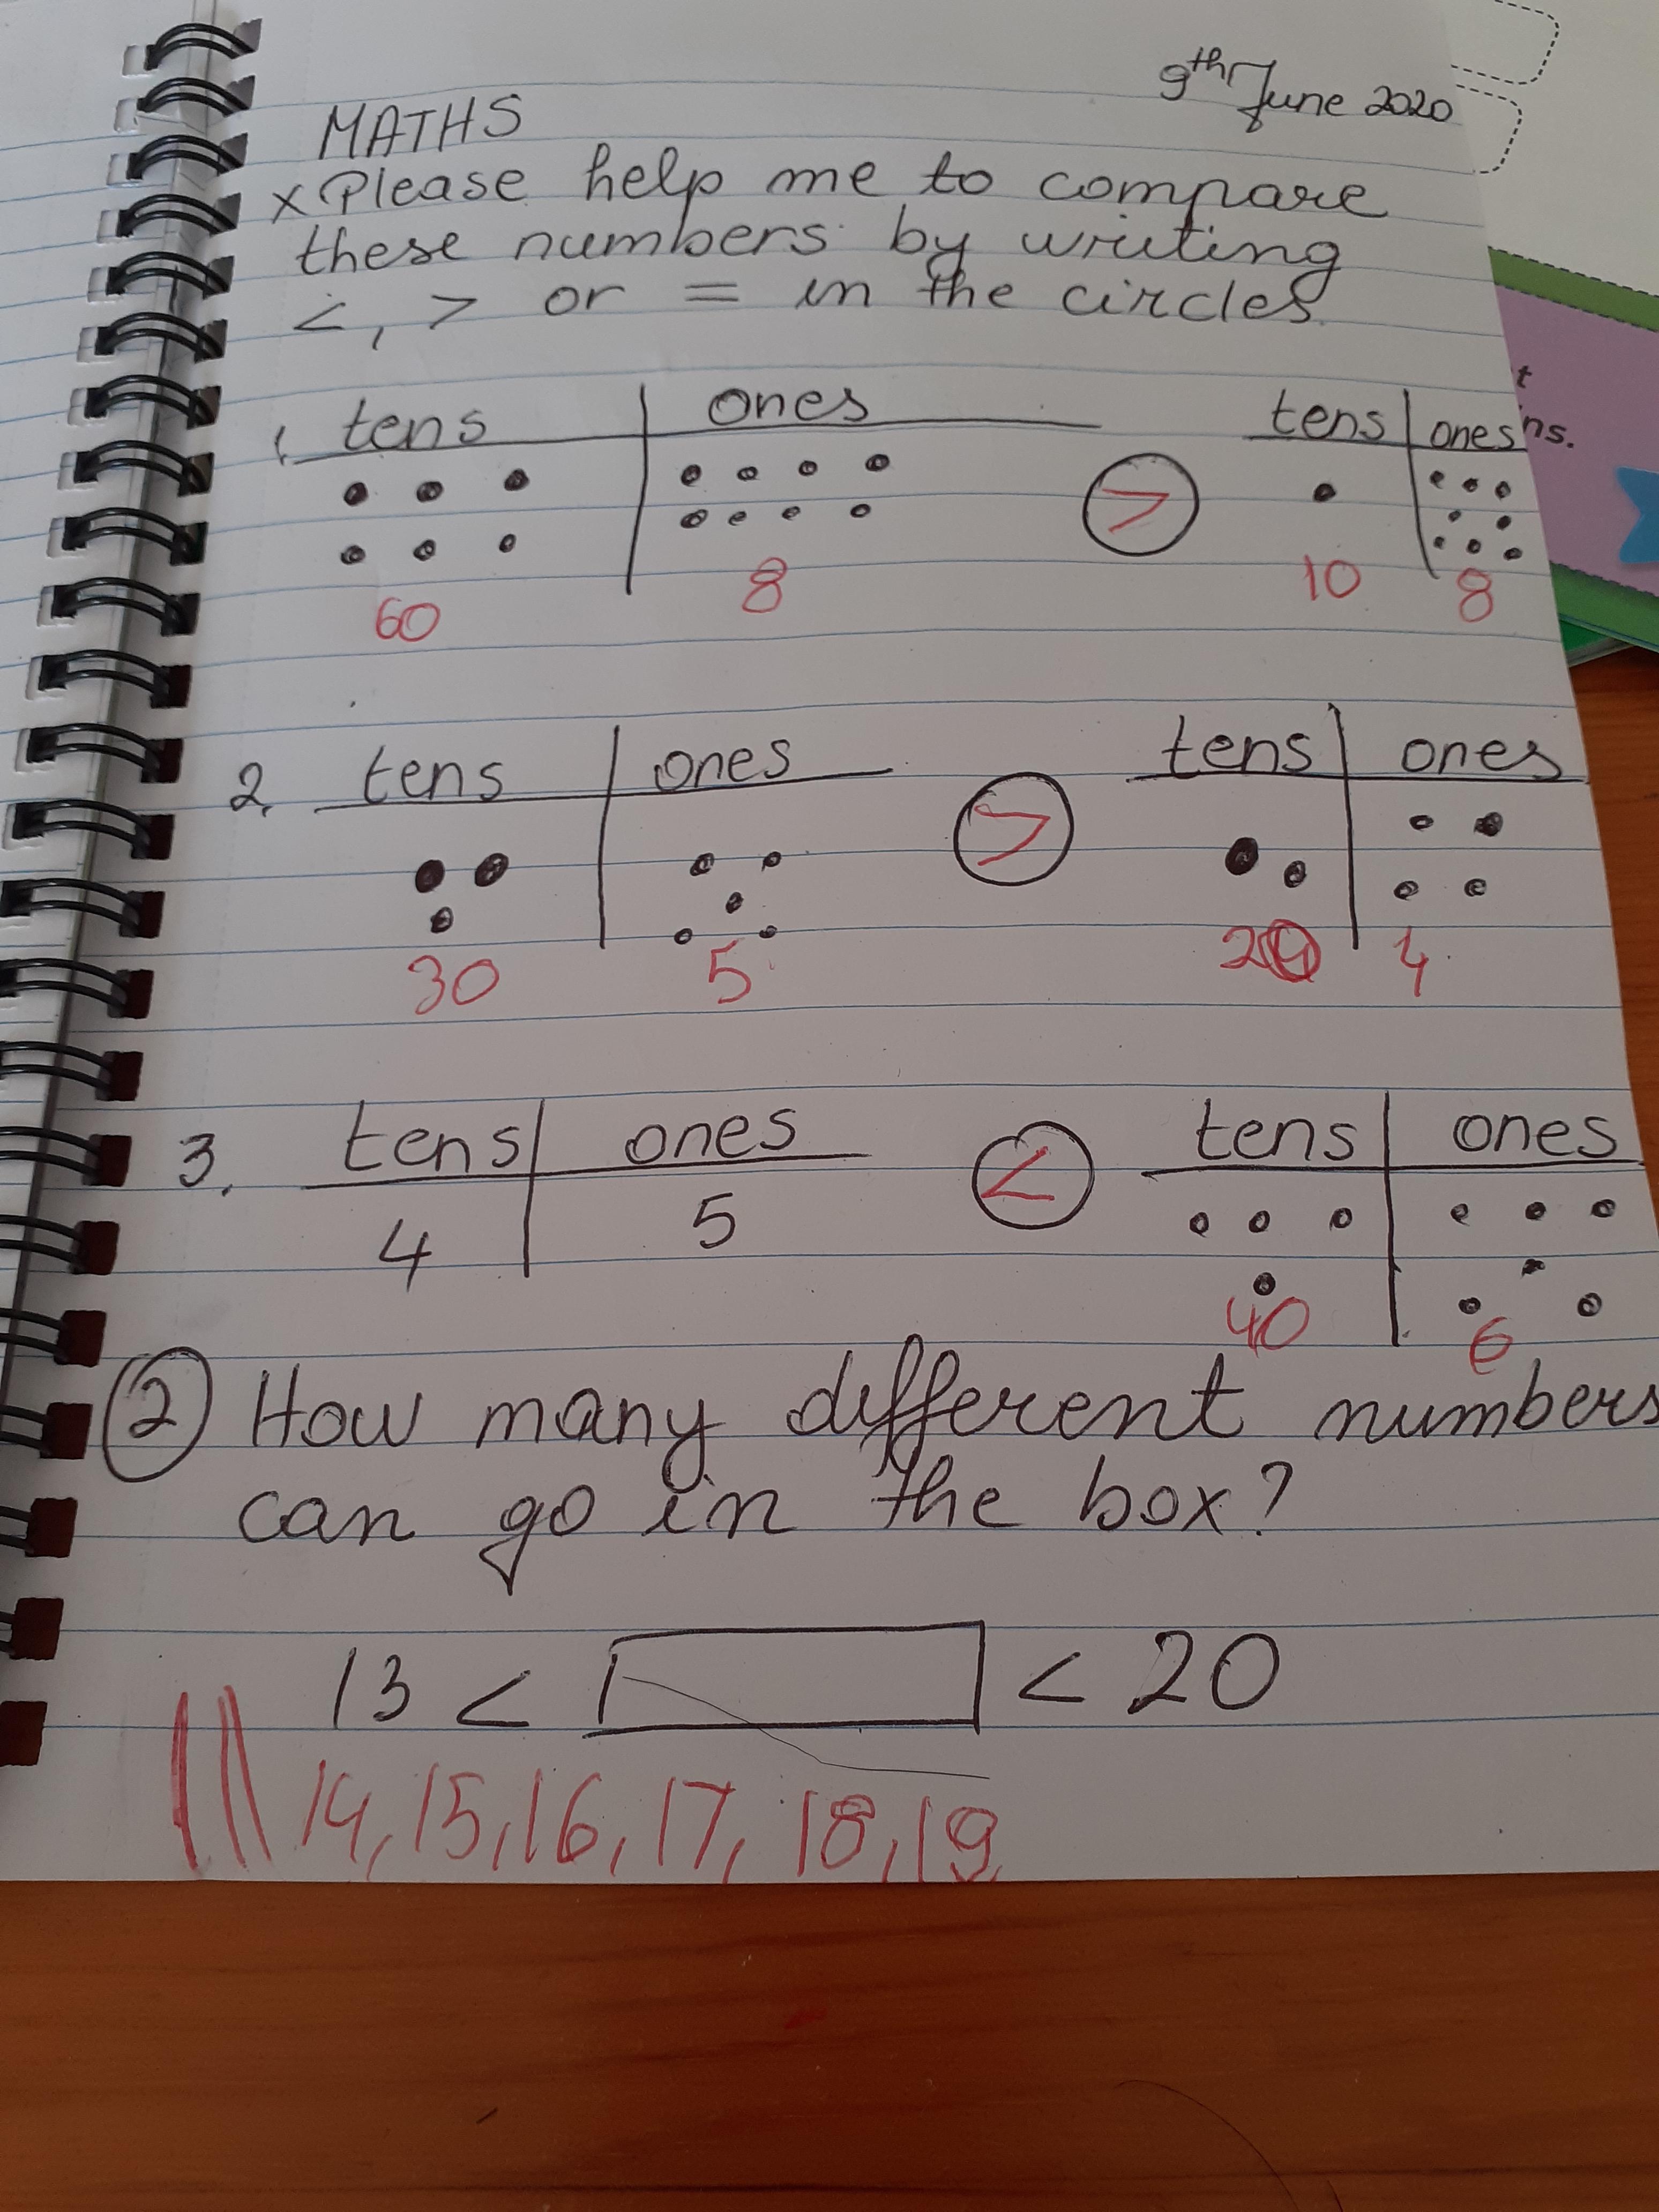 9th June 2020
MATHS
x Please help me to compare
these numbers by writing
<, > or = in the circles.
1. tens ones > tens ones
60 8 10 8
2. tens ones > tens ones
30 5 20 4
3. tens ones < tens ones
4 5
40 6
2 How many different numbers
can go in the box?
13 < < 20
14, 15, 16, 17, 18, 19
t
ns.